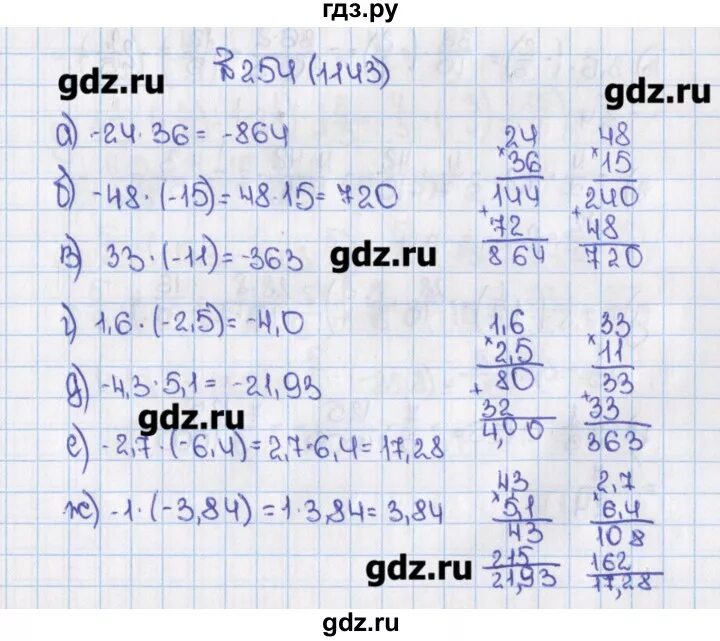 гдз.ру
№254 (1143)
gdz.ru
gdz.ru
а) -24 · 36 = -864
б) -48 · (-15) = 48 · 15 = 720
в) 33 · (-11) = -363
gdz.ru
г) 1,6 · (-2,5) = -4,0
д) -4,3 · 5,1 = -21,93
gdz.ru
е) -2,7 · (-6,4) = 2,7 · 6,4 = 17,28
ж) -1 · (-3,84) = 1 · 3,84 = 3,84
gdz.ru
24
× 36
144
+ 72
864
48
× 15
240
+ 48
720
1,6
× 2,5
+ 80
32
4,00
33
× 11
33
+ 33
363
43
× 5,1
43
215
21,93
2,7
× 6,4
108
162
17,28
гдз.ру